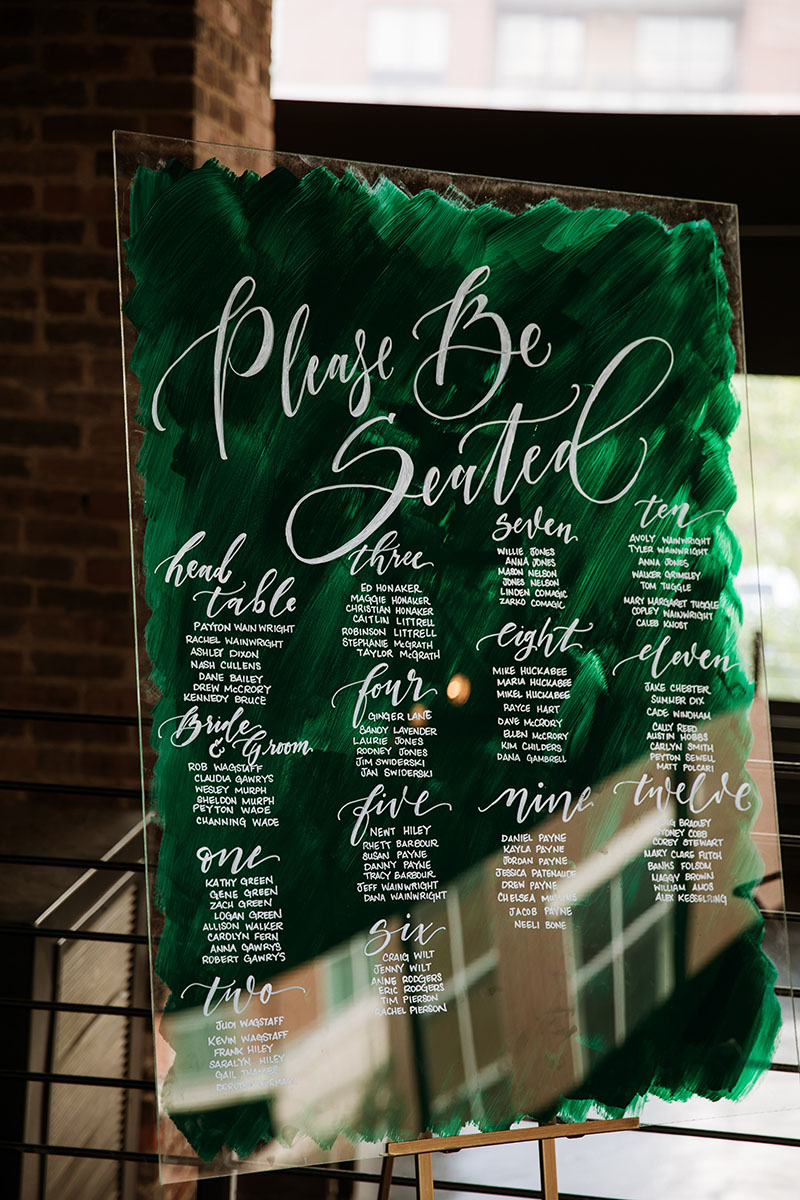 Please Be
Seated
head
table
PAYTON WAINWRIGHT
RACHEL WAINWRIGHT
ASHLEY DIXON
NASH CULLENS
DANE BAILEY
DREW McCRORY
KENNEDY BRUCE
Bride
& Groom
ROB WAGSTAFF
CLAUDIA GAWRYS
WESLEY MURPH
SHELDON MURPH
PEYTON WADE
CHANNING WADE
one
KATHY GREEN
GENE GREEN
ZACI GREEN
LOGAN GREEN
ALLISON WALKER
CAROLYN FERN
ANNA GAWRYS
ROBERT GAWRYS
two
JUDI WAGSTAFF
KEVIN WAGSTAFF
FRANK HILEY
SARALYN HILEY
GAIL
three
ED HONAKER
MAGGIE HONAKER
CHRISTIAN HONAKER
CAITLIN LITTRELL
ROBINSON LITTRELL
STEPHANIE McGRATH
TAYLOR McGRATH
four
GINGER LANE
SANDY LAVENDER
LAURIE JONES
RODNEY JONES
JIM SWIDERSKI
JAN SWIDERSKI
five
NEWT HILEY
RHETT BARBOUR
SUSAN PAYNE
DANNY PAYNE
TRACY BARBOUR
JEFF WAINWRIGHT
DANA WAINWRIGHT
six
CRAIG WILT
JENNY WILT
ANNE RODGERS
ERIC RODGERS
TIM PIERSON
RACHEL PIERSON
seven
WILLIE JONES
ANNA JONES
MASON NELSON
JONES NELSON
LINDEN COMAGIC
ZARKO COMAGIC
eight
MIKE HUCKABEE
MARIA HUCKABEE
MIKEL HUCKABEE
RAYCE HART
DAVE McCRORY
ELLEN McCRORY
KIM CHILDERS
DANA GAMBRELL
nine
DANIEL PAYNE
KAYLA PAYNE
JORDAN PAYNE
JESSICA PATENAUDE
DREW PAYNE
CHELSEA
JACOB PAYNE
NEELI BONE
ten
AVOLY WAINWRIGHT
TYLER WAINWRIGHT
ANNA JONES
WALKER GRIMSLEY
TOM TUGGLE
MARY MARGARET TUGGLE
COPLEY WAINWRIGHT
CALEB KNOST
eleven
JAKE CHESTER
SUMMER DIX
CADE WINDHAM
CALLY REED
AUSTIN HOBBS
CARLYN SMITH
PEYTON SEWELL
MATT POLCARI
twelve
BRADLEY
SYDNEY COBB
COREY STEWART
MARY CLARE FUTCH
BANKS FOLSOM
MAGGY BROWN
WILLIAM AMOS
ALEX KESSELRING